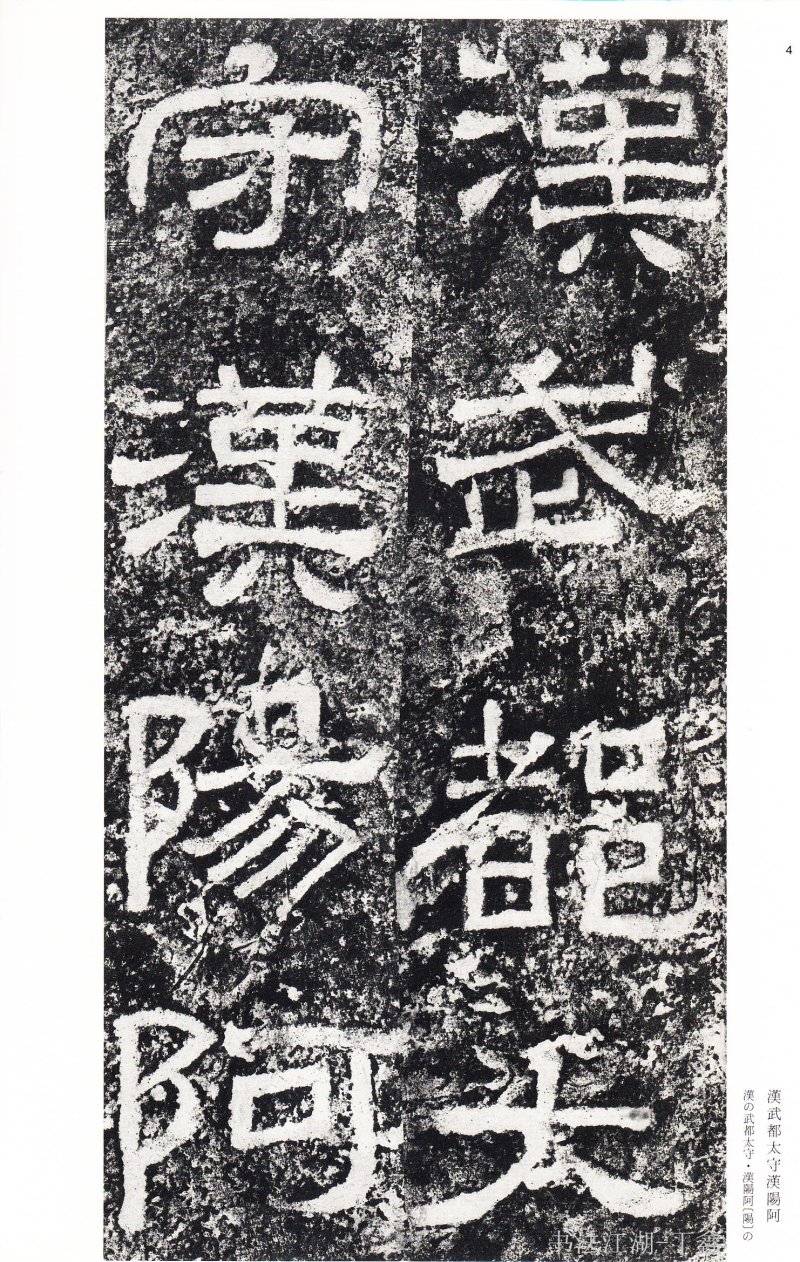 4
漢武都太
守漢陽阿
漢武都太守漢陽阿
漢の武都太守・漢陽阿〔陽〕の
书法江湖-丁